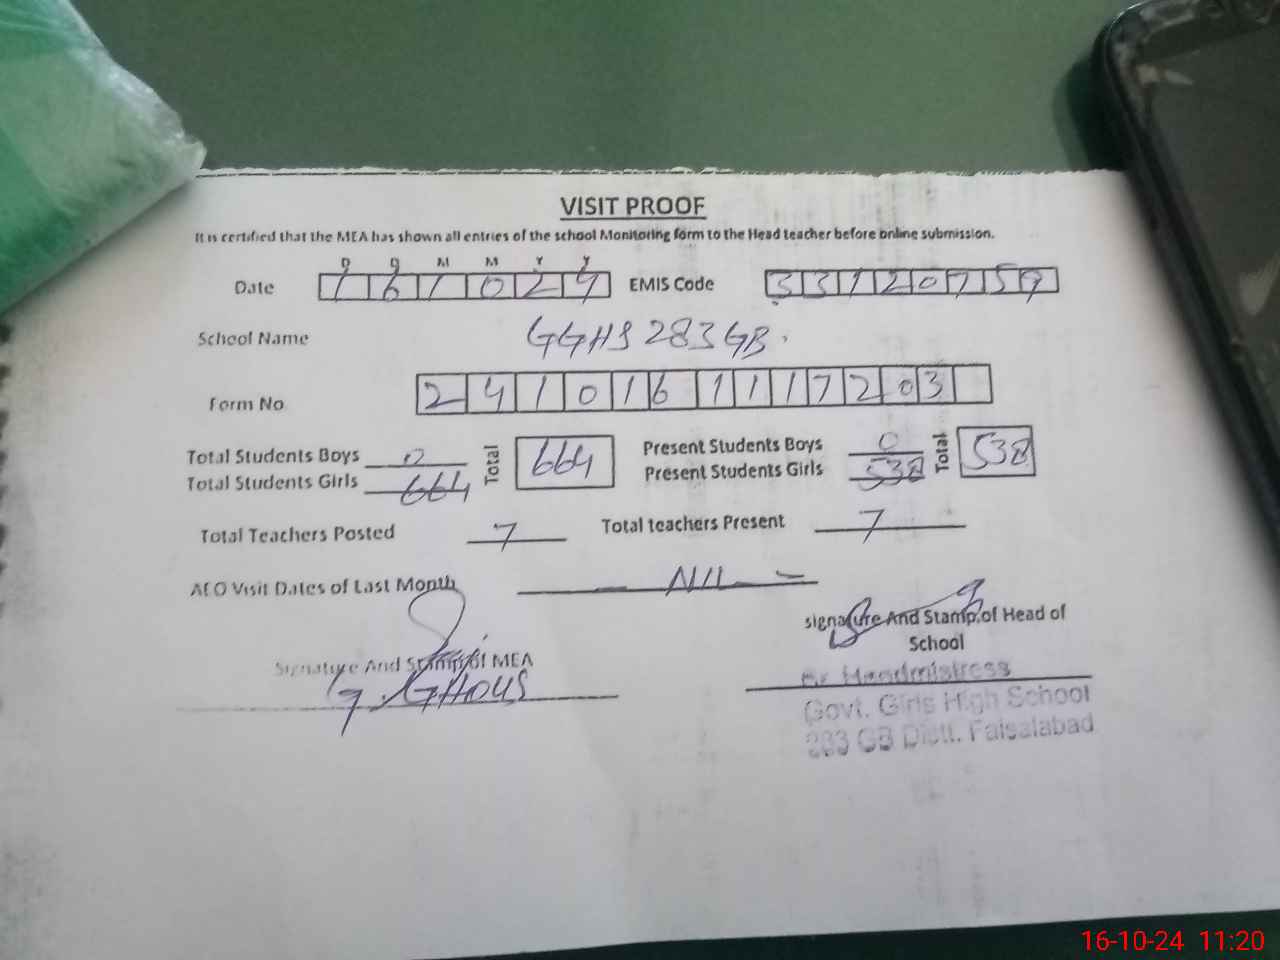 VISIT PROOF
It is certified that the MEA has shown all entries of the school Monitoring form to the Head teacher before online submission.
D D M M Y Y
Date 161024 EMIS Code 33120759
School Name GGHS 283 GB.
Form No 2410161117203
Total Students Boys 0 Total 664 Present Students Boys 0 Total 538
Total Students Girls 664 Present Students Girls 538
Total Teachers Posted 7 Total teachers Present 7
AEO Visit Dates of Last Month NIL
signature And Stamp of Head of
School
Signature And Stamp of MEA
G. GHOUS
Sr Headmistress
Govt. Girls High School
283 GB Distt. Faisalabad
16-10-24 11:20